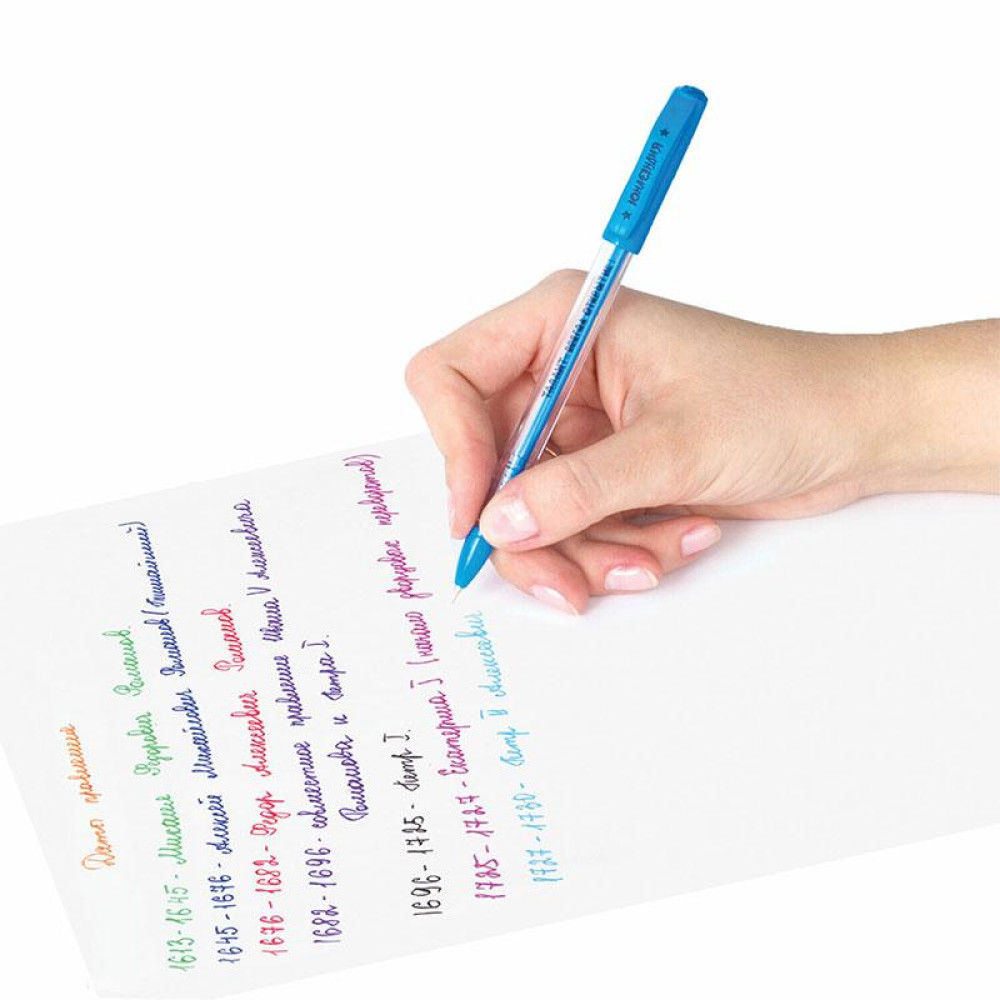 Дата правления
1613-1645 - Михаил Федорович Романов.
1645-1676 - Алексей Михайлович Романов (тишайший)
1676-1682 - Федор Алексеевич Романов.
1682-1696 - совместное правление Ивана V Алексеевича
Романова и Петра I.
1696-1725 - Петр I.
1725-1727 - Екатерина I (начало дворцовых переворотов)
1727-1730 - Петр II Алексеевич
★ ЮНЛАНДИЯ ★